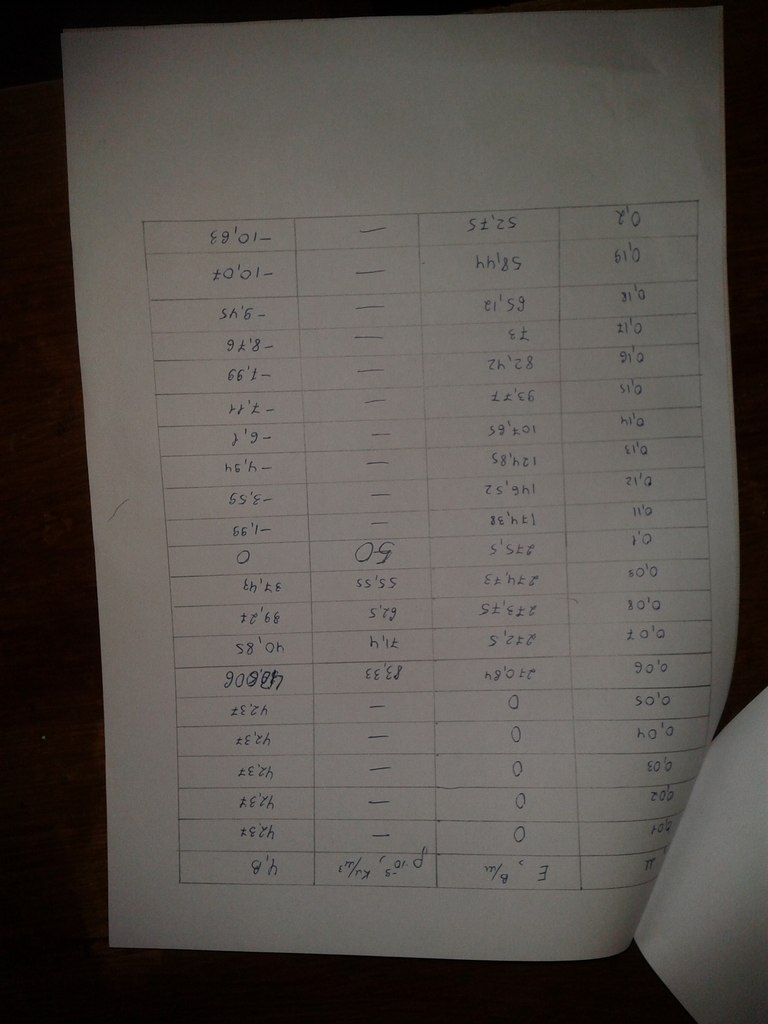 м E, В/м ρ·10⁻⁵, Кл/м³ φ, В
0,01 0 — 42,37
0,02 0 — 42,37
0,03 0 — 42,37
0,04 0 — 42,37
0,05 0 — 42,37
0,06 270,84 83,33
0,07 272,5 71,4 40,85
0,08 273,75 62,5 39,27
0,09 274,73 55,55 37,43
0,1 275,5 50 0
0,11 174,38 — -1,99
0,12 146,52 — -3,59
0,13 124,85 — -4,94
0,14 107,65 — -6,1
0,15 93,77 — -7,11
0,16 82,42 — -7,99
0,17 73 — -8,76
0,18 65,12 — -9,45
0,19 58,44 — -10,07
0,2 52,75 — -10,63